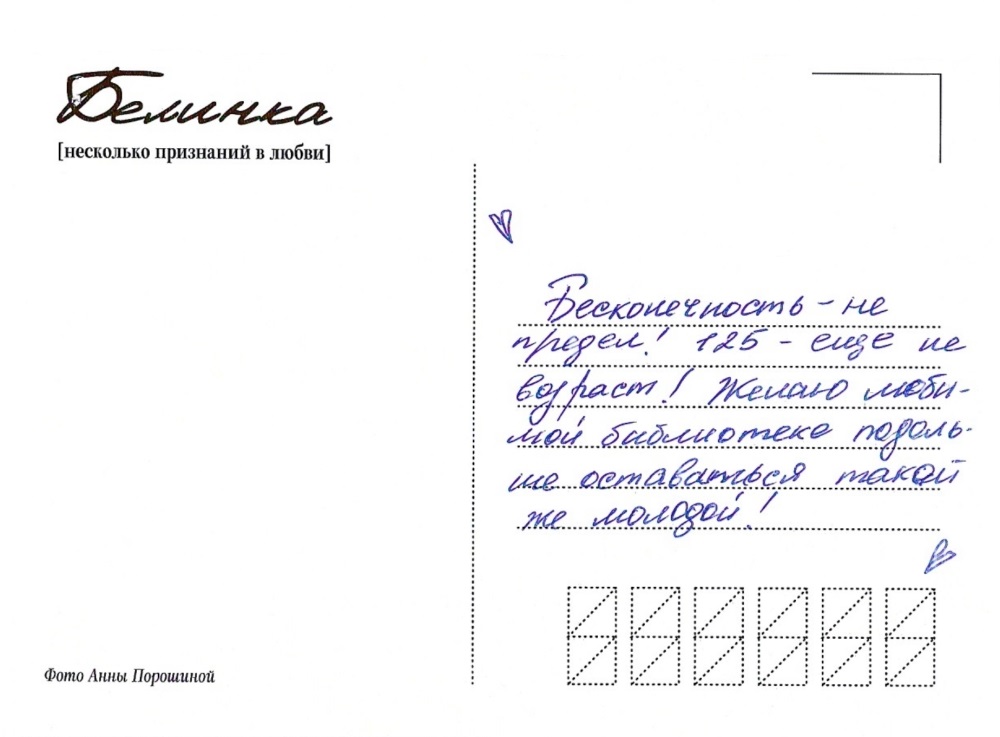 Белинка
[несколько признаний в любви]
Бесконечность – не
предел! 125 – еще не
возраст! Желаю люби-
мой библиотеке подоль-
ше оставаться такой
же молодой!
Фото Анны Порошиной